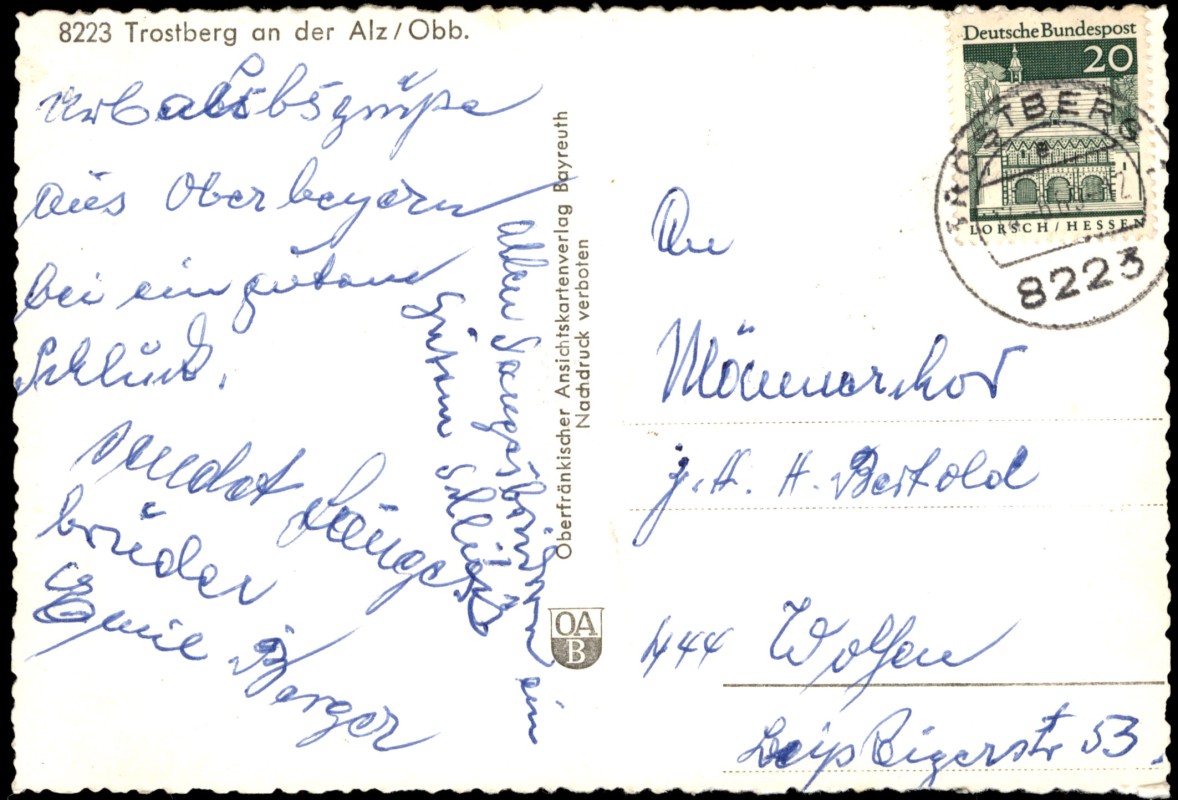 8223 Trostberg an der Alz / Obb.
Urlaubsgrüße
aus Oberbayern
bei ein gutem
Schluck.
sendet Sänges
bruder
Emil Berger
allen Sangesbrüdern ein
guten Schluck
Oberfränkischer Ansichtskartenverlag Bayreuth
Nachdruck verboten
OA
B
Deutsche Bundespost
20
LORSCH / HESSEN
TROSTBERG
8223
An
Männerchor
z. H. H. Bertold
444 Wolfen
Leipzigerstr 53.